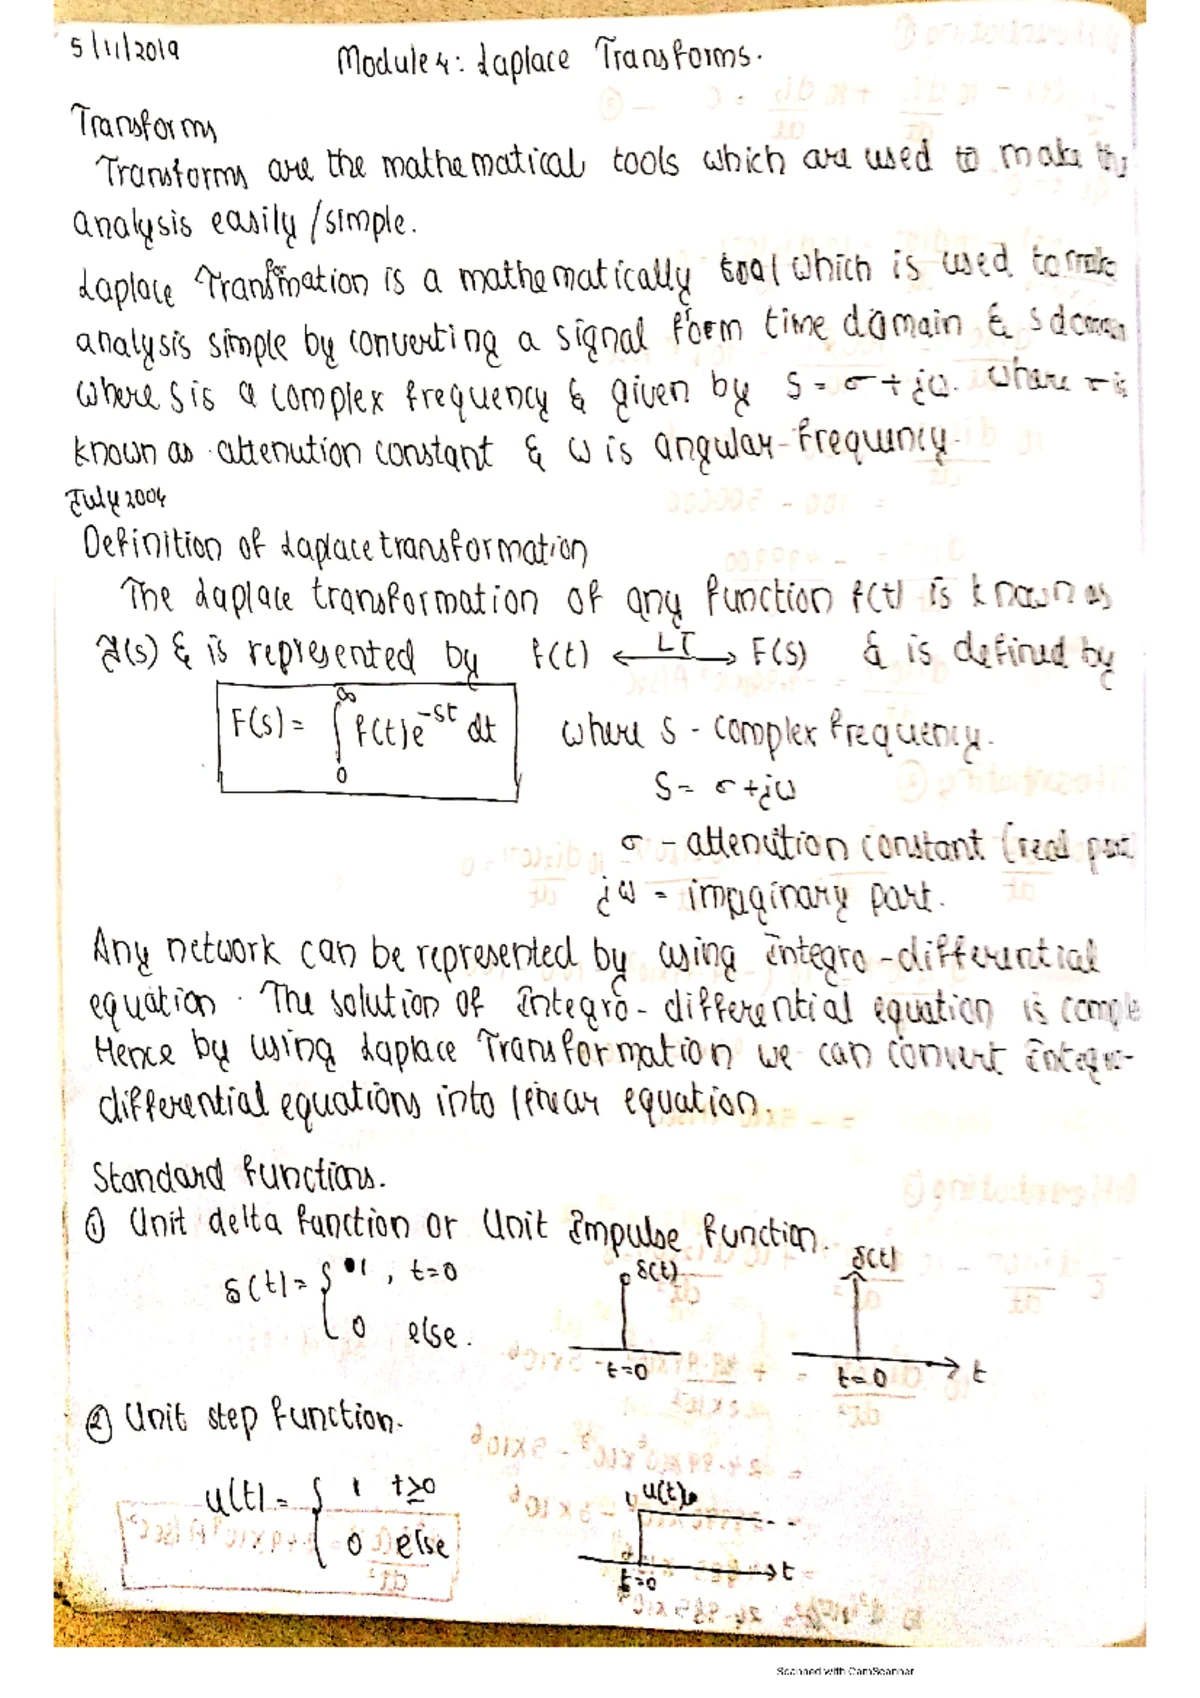 5/11/2019
Module 4: Laplace Transforms.
Transforms
Transforms are the mathematical tools which are used to make the
analysis easily/simple.
Laplace Transfmation is a mathematically tool which is used to make
analysis simple by converting a signal form time domain & s domain
where s is a complex frequency & given by S = σ + jω. where σ is
known as attenution constant & ω is angular-frequency.
July 2004
Definition of Laplace transformation
The Laplace transformation of any function f(t) is known as
F(s) & is represented by f(t) ←LT→ F(S) & is defined by
F(S) = ∫₀^∞ f(t)e^-st dt where S - complex frequency.
S = σ + jω
σ - attenution constant (real part)
jω = imaginary part.
Any network can be represented by using Integro-differential
equation. The solution of Integro-differential equation is comple
Hence by using Laplace Transformation we can convert Integro-
differential equations into linear equation.
Standard functions.
① Unit delta function or Unit Impulse function.
δ(t) = { 1, t=0
0 else.
δ(t)
t=0
δ(t)
t=0
t
② Unit step function.
u(t) = { 1 t≥0
0 else
u(t)
t=0
t
Scanned with CamScanner